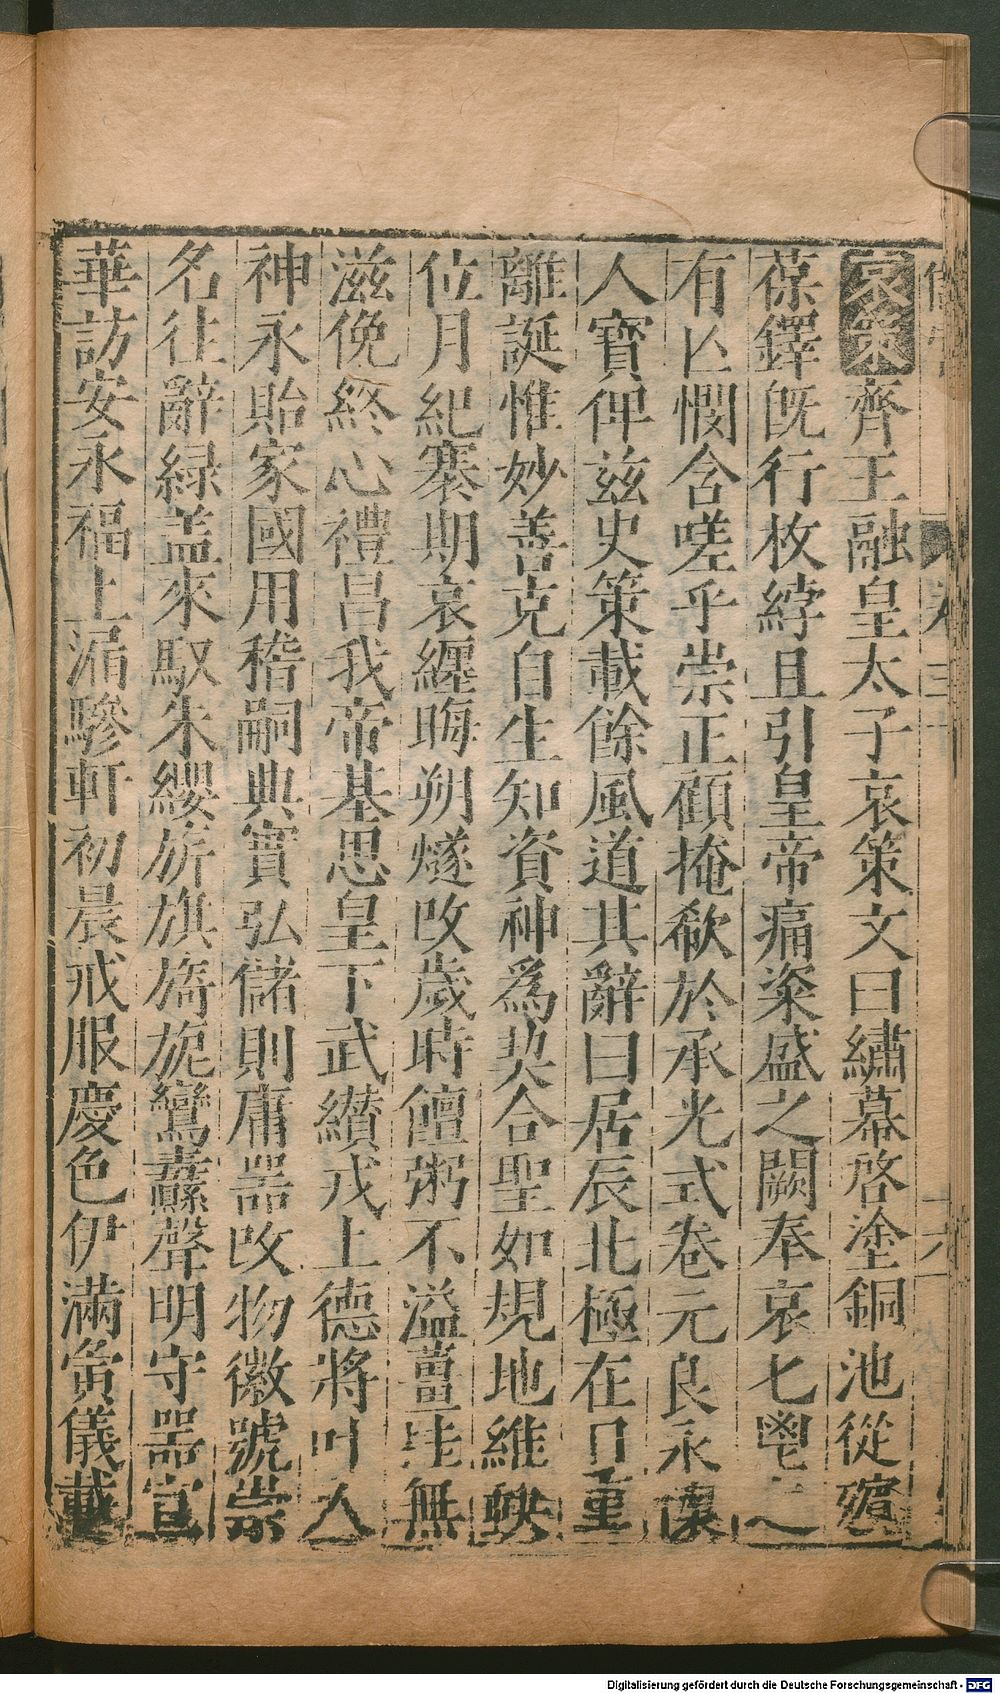 哀策齊王融皇太子哀策文曰繡幕啓塗銅池從殯
葆鐸旣行枚綍且引皇帝痛粢盛之闕奉哀七鬯之
有亾憫含嗟乎崇正顧掩欷於承光式卷元良永懐
人寶俾兹史策載餘風道其辭曰居辰北極在日重
離誕惟妙善克自生知資神爲契合聖如規地維峽
位月紀褰期哀纒晦朔燧改歲時饘粥不溢薑 無
滋俛終心禮昌我帝基思皇下武纉戎上德將叶入
神永貽家國用稽嗣典實弘儲則庸噐改物徽號崇
名往辭緑盖來馭朱纓旂旗旖旎鸞纛聲明守噐宣
華訪安永福上漏驂軒初晨戒服慶色伊滿黄儀載
Digitalisierung gefördert durch die Deutsche Forschungsgemeinschaft - DFG